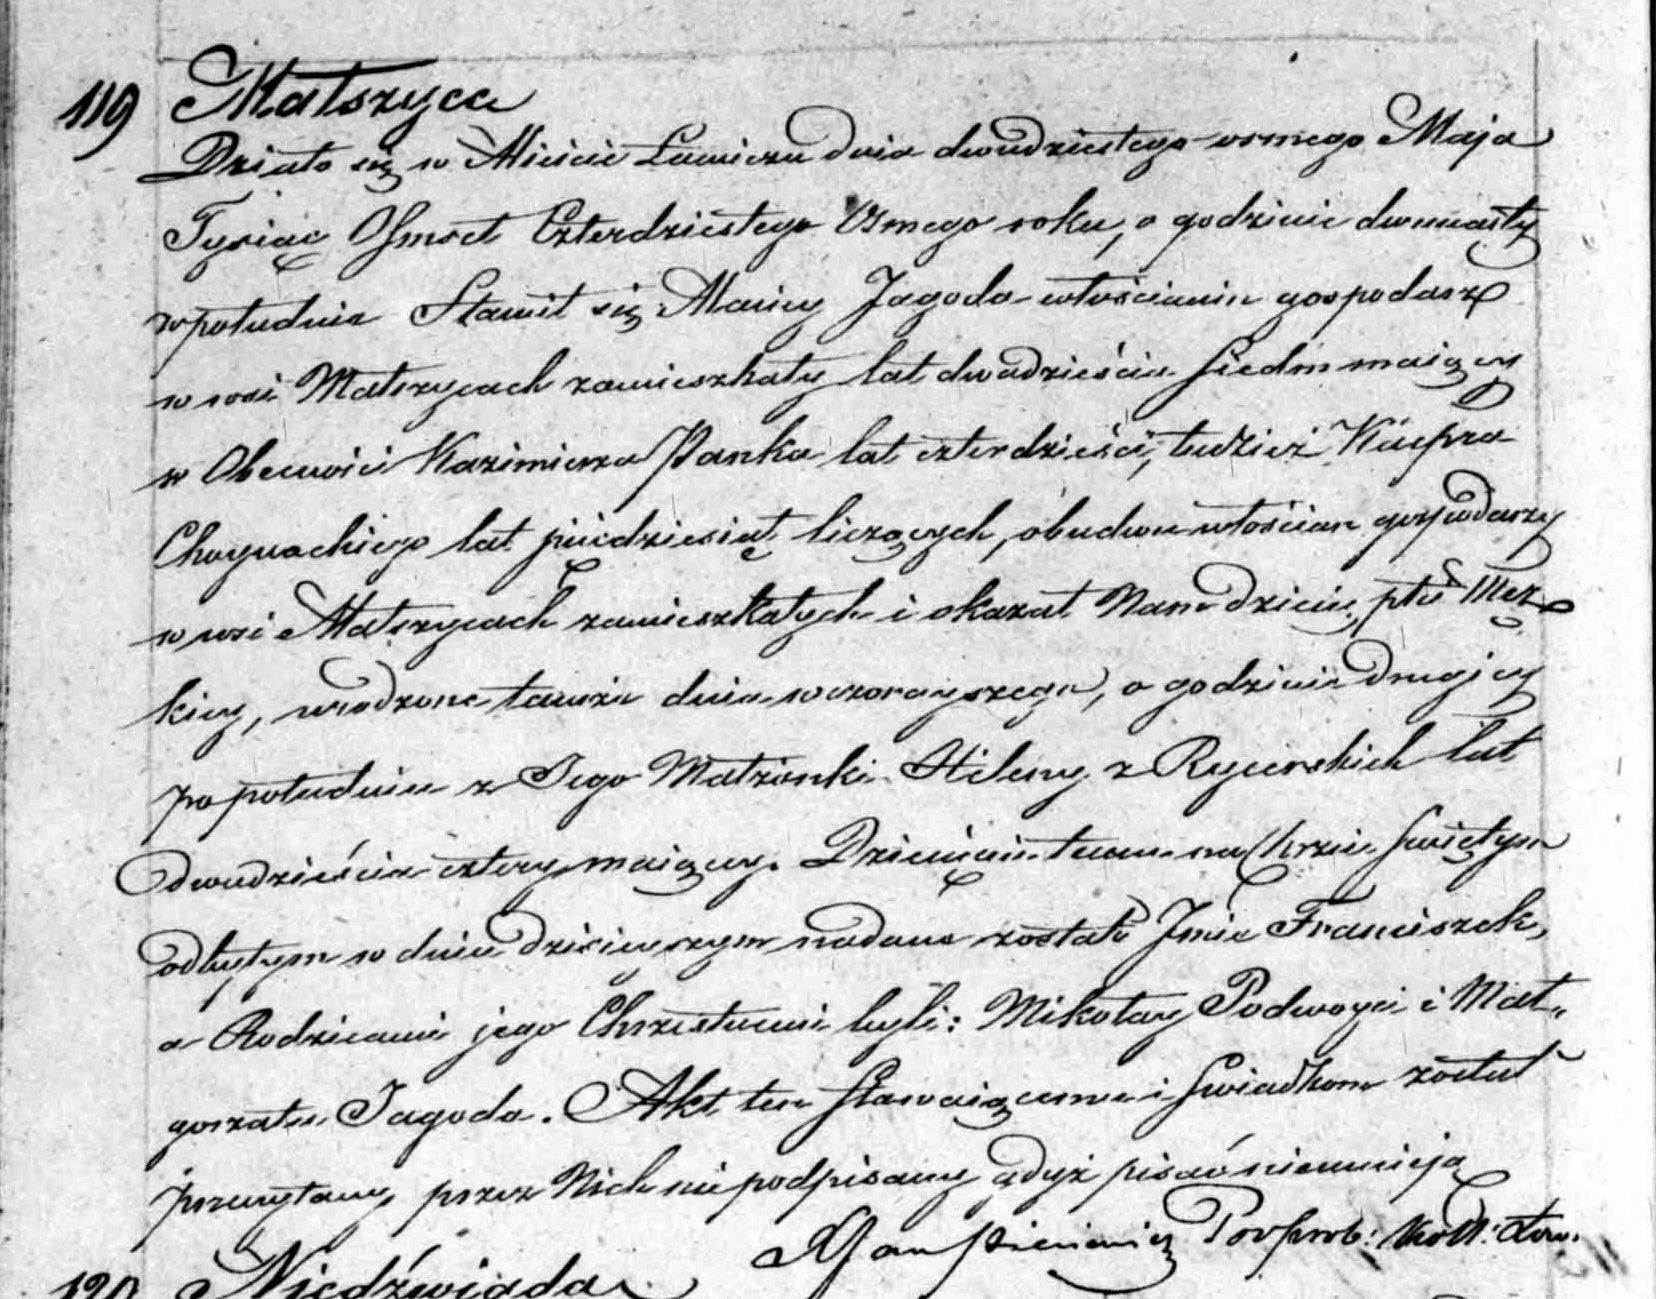 119 Matszyce
Działo się w Mieście Łowiczu dnia dwudziestego osmego Maja
Tysiąc Ośmset Czterdziestego Osmego roku, o godzinie dwunasty
w południe Stawił się Maciey Jagoda włościanin gospodarz
w wsi Matszycach zamieszkały lat dwadzieścia siedm maiący
w Obecności Kazimierza Panka lat czterdzieści, tudzież Kacpra
Choynackiego lat pięćdziesiąt liczących, obudwu włościan gospodarzy
w wsi Matszycach zamieszkałych i okazał Nam dziecię płci Męz
kiey, urodzone tamże dnia wczorayszego, o godzinie drugiey
po południu z Jego Małżonki Heleny z Rycerskich lat
dwadzieścia cztery maiącey. Dziecięciu temu na Chrzcie Świętym
odbytym w dniu dzisieyszym nadane zostało Imie Franciszek,
a Rodzicami jego Chrzestnemi byli: Mikołay Podwoyci i Mał„
gorzata Jagoda. Akt ten stawaiącemu i Świadkom został
przeczytany przez Nich nie podpisany gdyż pisać nieumieją
Koll: Łow:
120 Niedźwiada